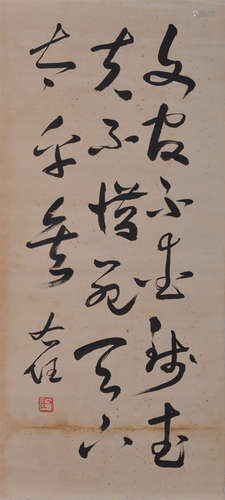 文官不爱钱武
夫不惜死天下
太平矣
右任